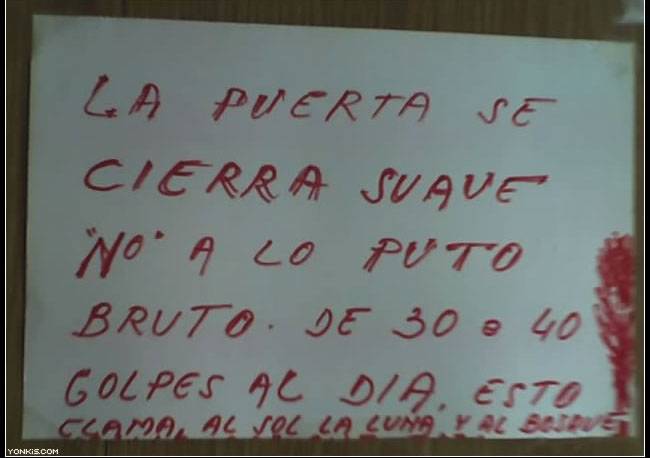 LA PUERTA SE
CIERRA SUAVE
"NO" A LO PUTO
BRUTO. DE 30 o 40
GOLPES AL DIA. ESTO
CLAMA. AL SOL LA LUNA. Y AL BOSQUE
YONKIS.COM